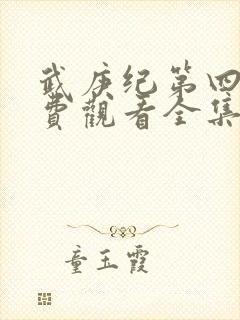 武庚纪第四
費觀看全集
童玉霞